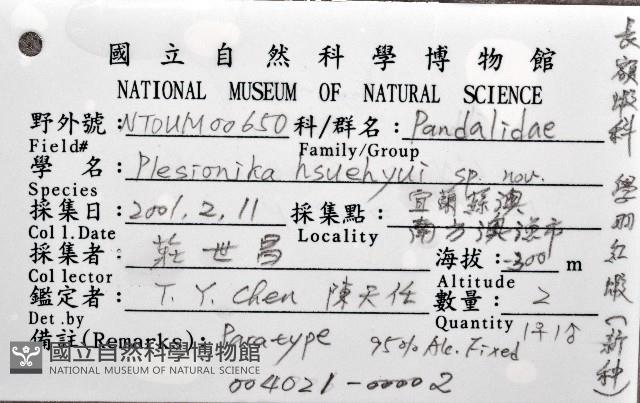 國立自然科學博物館
NATIONAL MUSEUM OF NATURAL SCIENCE
野外號：NTOUM00650 科/群名：Pandalidae
Field# Family/Group
學 名：Plesionika hsuehyui sp. nov.
Species
採集日：2001. 2. 11 採集點：宜蘭蘇澳
南方澳漁市
Coll.Date Locality
採集者：莊世昌 海拔：-300 m
Collector Altitude
鑑定者：T. Y. Chen 陳天任 數量：2
Det.by Quantity 1♀1♂
備註(Remarks)：Paratype 95% Alc. Fixed
004021-00002
長額蝦科 學羽紅蝦(新種)
國立自然科學博物館
NATIONAL MUSEUM OF NATURAL SCIENCE